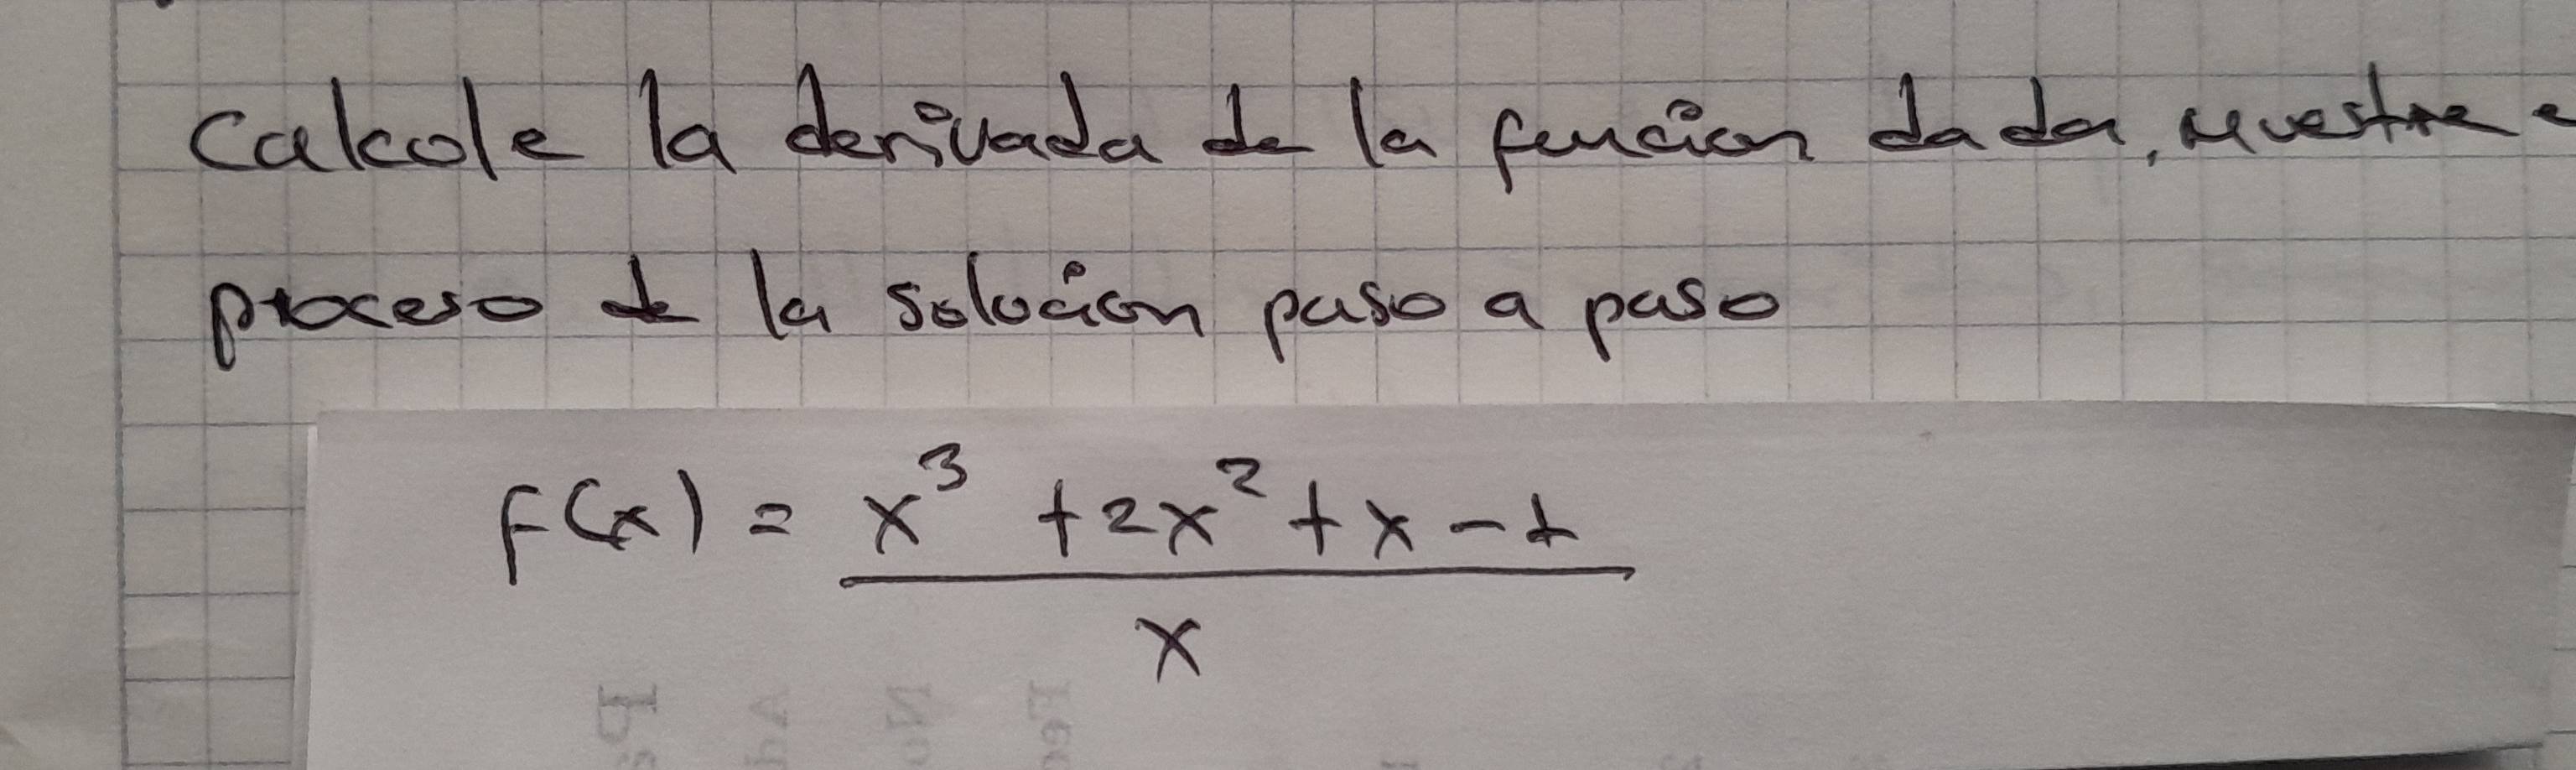 Calcule la derivada de la función dada, muestre e
proceso de la solución paso a paso
f(x) = x³ + 2x² + x - 1
x